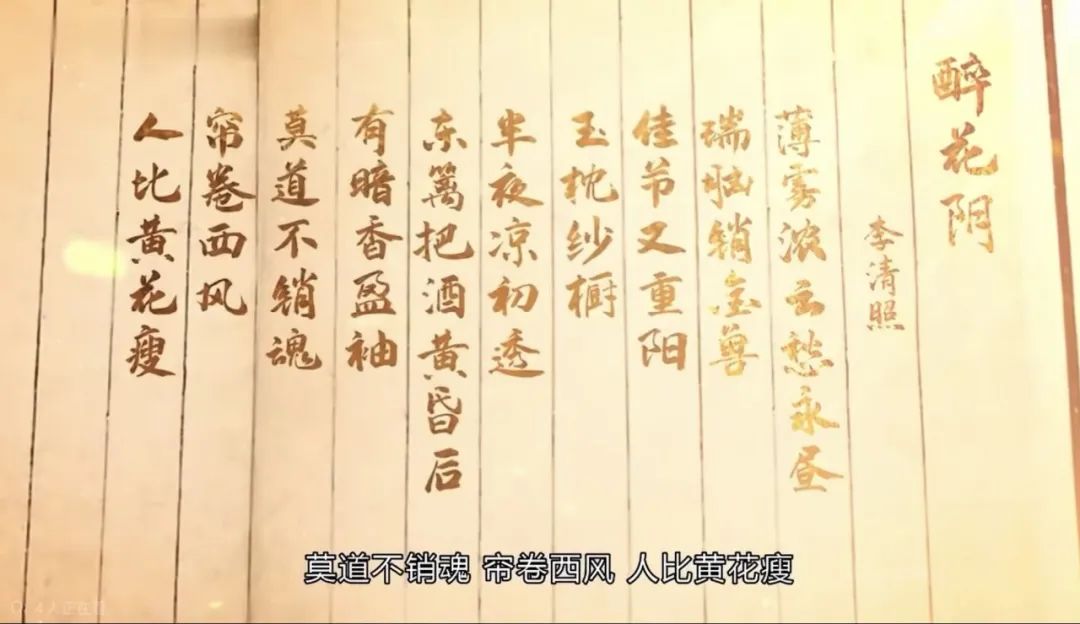 醉花阴
李清照
薄雾浓云愁永昼
瑞脑销金尊
佳节又重阳
玉枕纱橱
半夜凉初透
东篱把酒黄昏后
有暗香盈袖
莫道不销魂
帘卷西风
人比黄花瘦
莫道不销魂 帘卷西风 人比黄花瘦